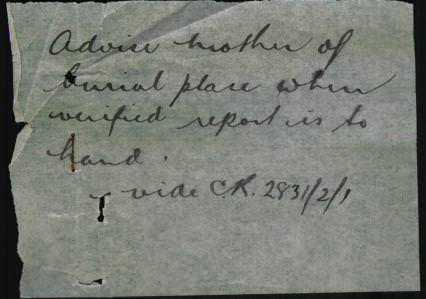 Advise mother of
burial place when
verified report is to
hand.
vide C.R. 2831/2/1